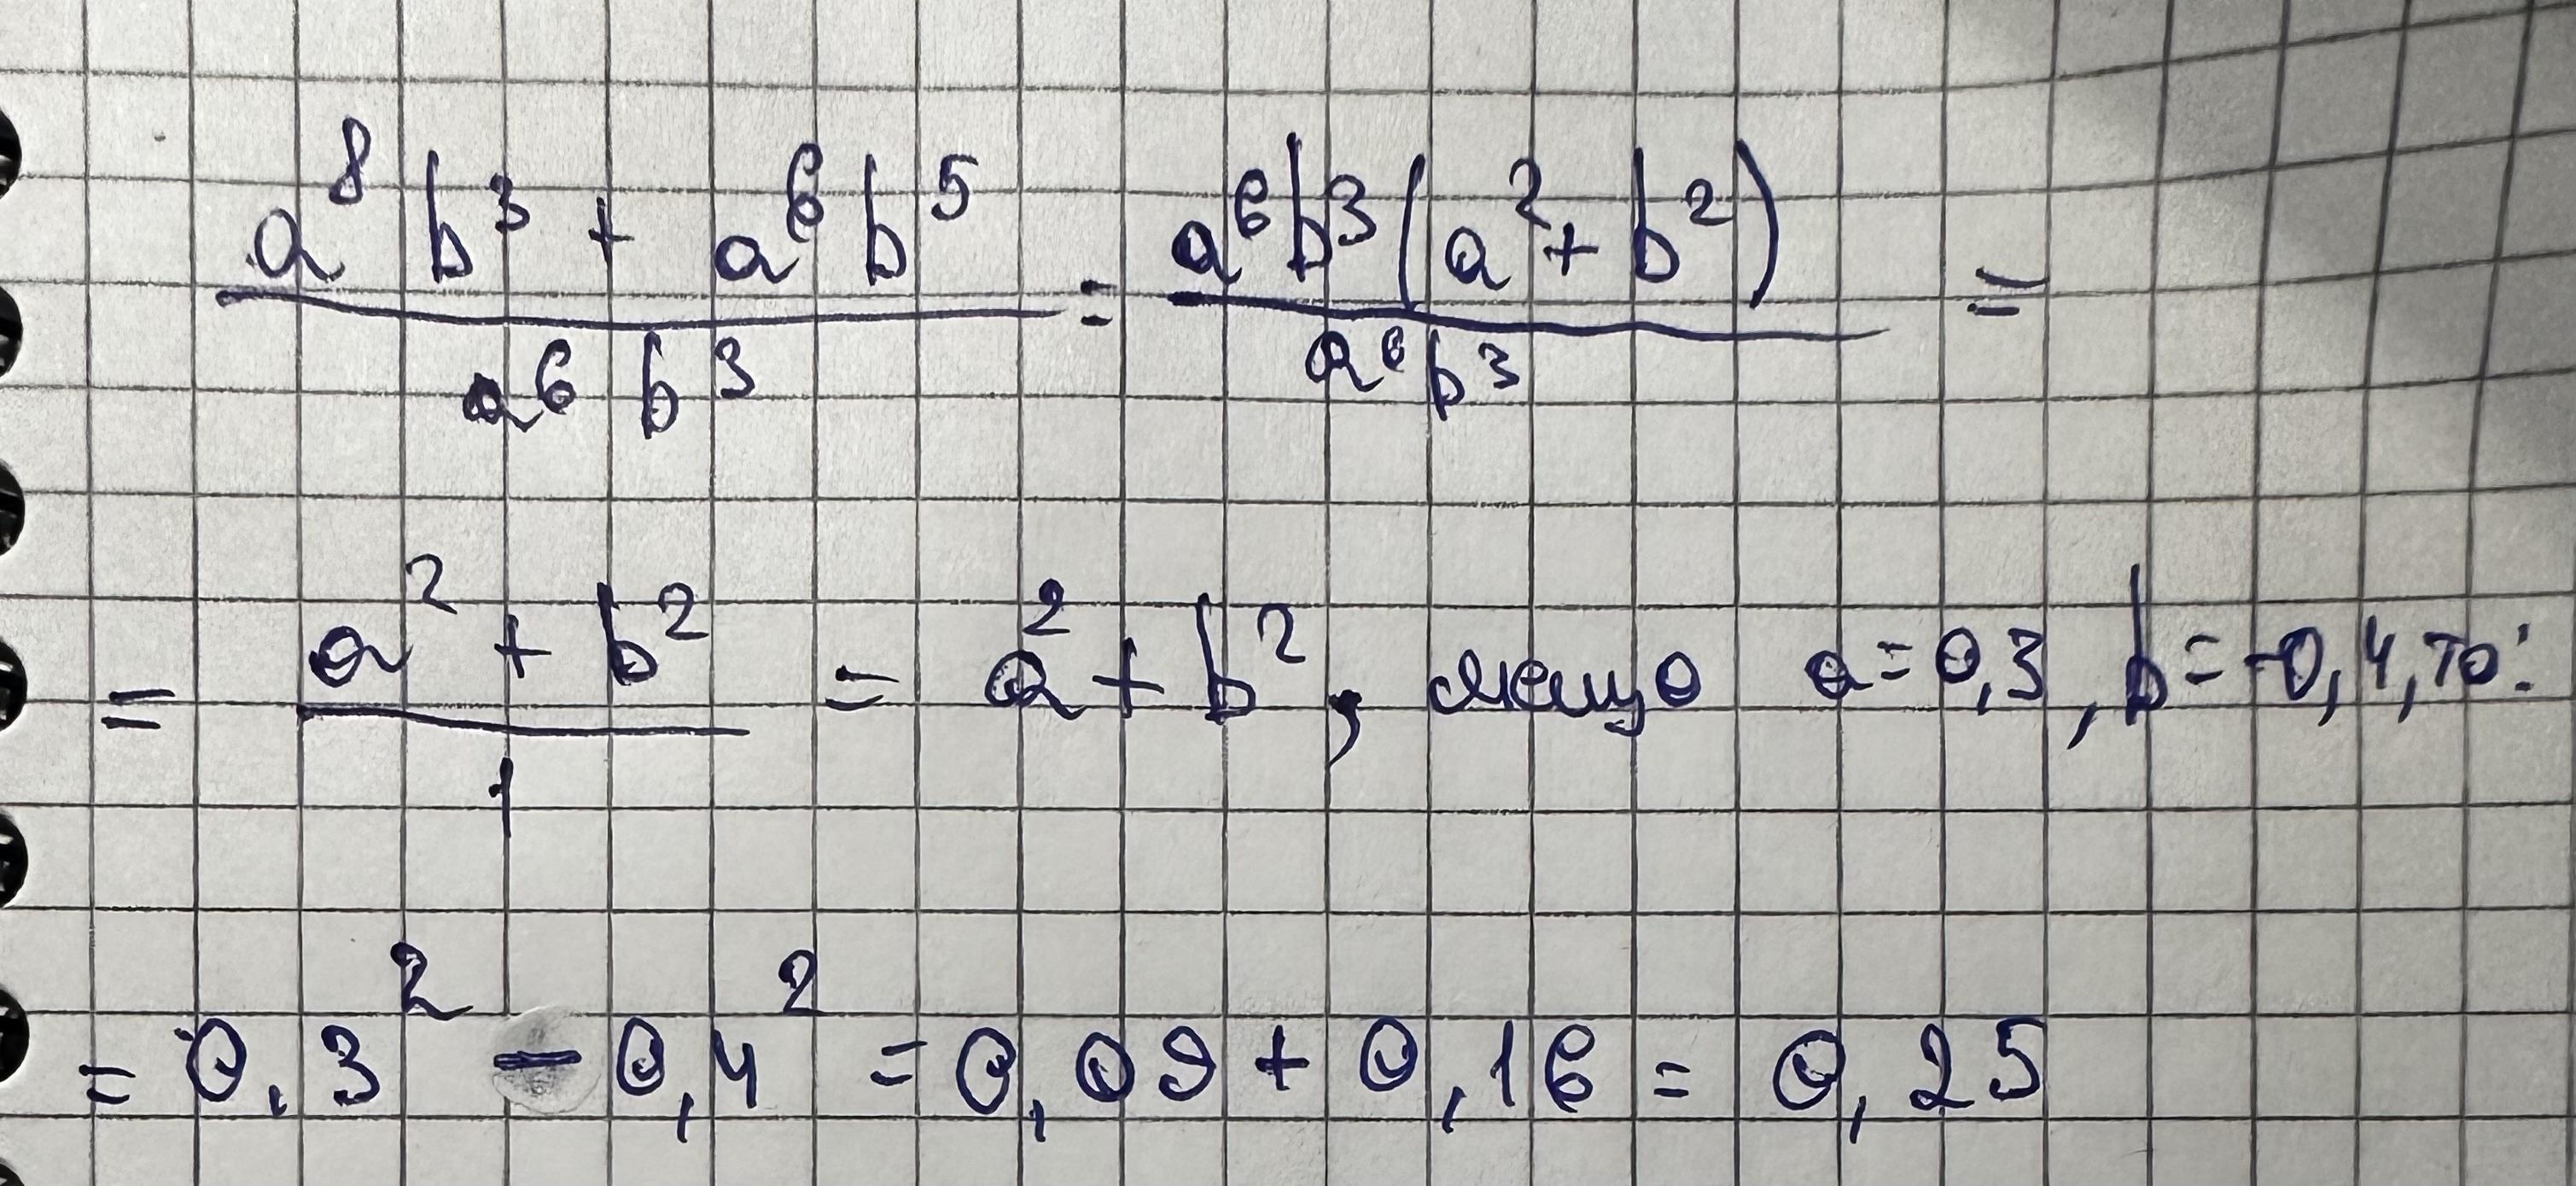 (a⁸b³ + a⁶b⁵)/(a⁶b³) = (a⁶b³(a² + b²))/(a⁶b³) =
= (a² + b²)/1 = a² + b², a = 0,3, b = -0,4, то:
= 0,3² - 0,4² = 0,09 + 0,16 = 0,25